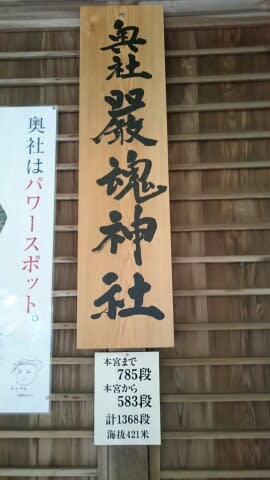 奥社
嚴魂神社
奥社はパワースポット。
本宮まで
785段
本宮から
583段
計1368段
海抜421米